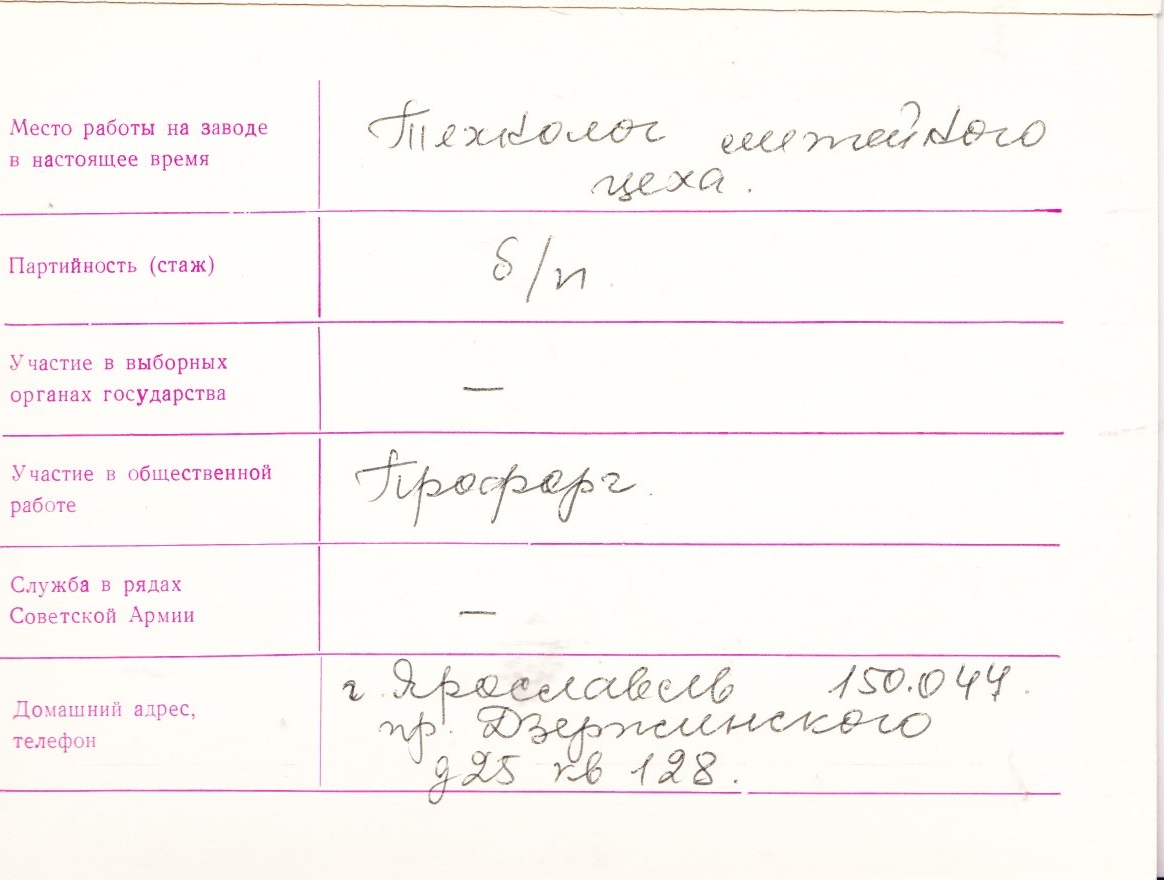 Место работы на заводе
в настоящее время
Технолог литейного
цеха.
Партийность (стаж)
б/п.
Участие в выборных
органах государства
—
Участие в общественной
работе
Профорг.
Служба в рядах
Советской Армии
—
Домашний адрес,
телефон
г. Ярославль 150.044.
пр. Дзержинского
д25 кв 128.